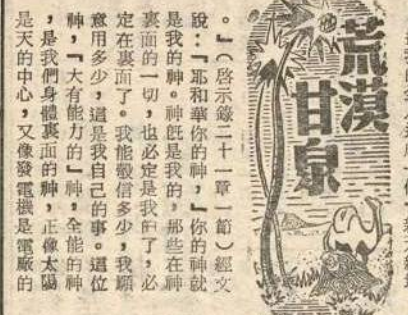 荒漠
甘泉
。』(啓示錄二十一章一節)經文
說:『耶和華你的神,』你的神就
是我的神。神旣是我的,那些在神
裏面的一切,也必定是我的了,必
定在裏面了。我能彀信多少,我願
意用多少,這是我自己的事。這位
神,『大有能力的』神,全能的神
,是我們身體裏面的神,正像太陽
是天的中心,又像發電機是電廠的